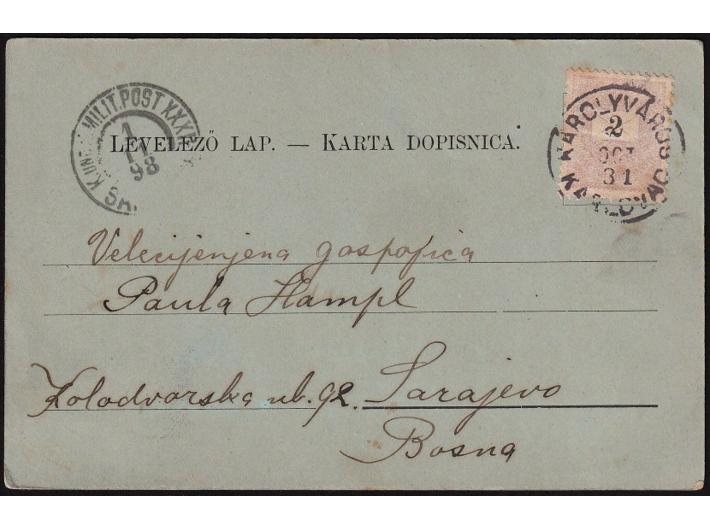 K.UND K.MILIT.POST XXXV
1
98
LEVELEZŐ LAP. — KARTA DOPISNICA.
KÁROLYVÁROS
2
OCT
31
KARLOVAC
Velecijenjena gospojica
Paula Hampl
Kolodvorska ul. 92. Sarajevo
Bosna